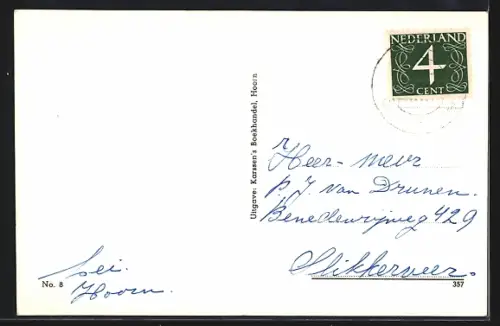 NEDERLAND
4
CENT
Uitgave: Karssen's Boekhandel, Hoorn
Heer - mevr
P. J. van Drunen.
Benedenrijweg 429
Slikkerveer.
Hoorn.
No. 8
357